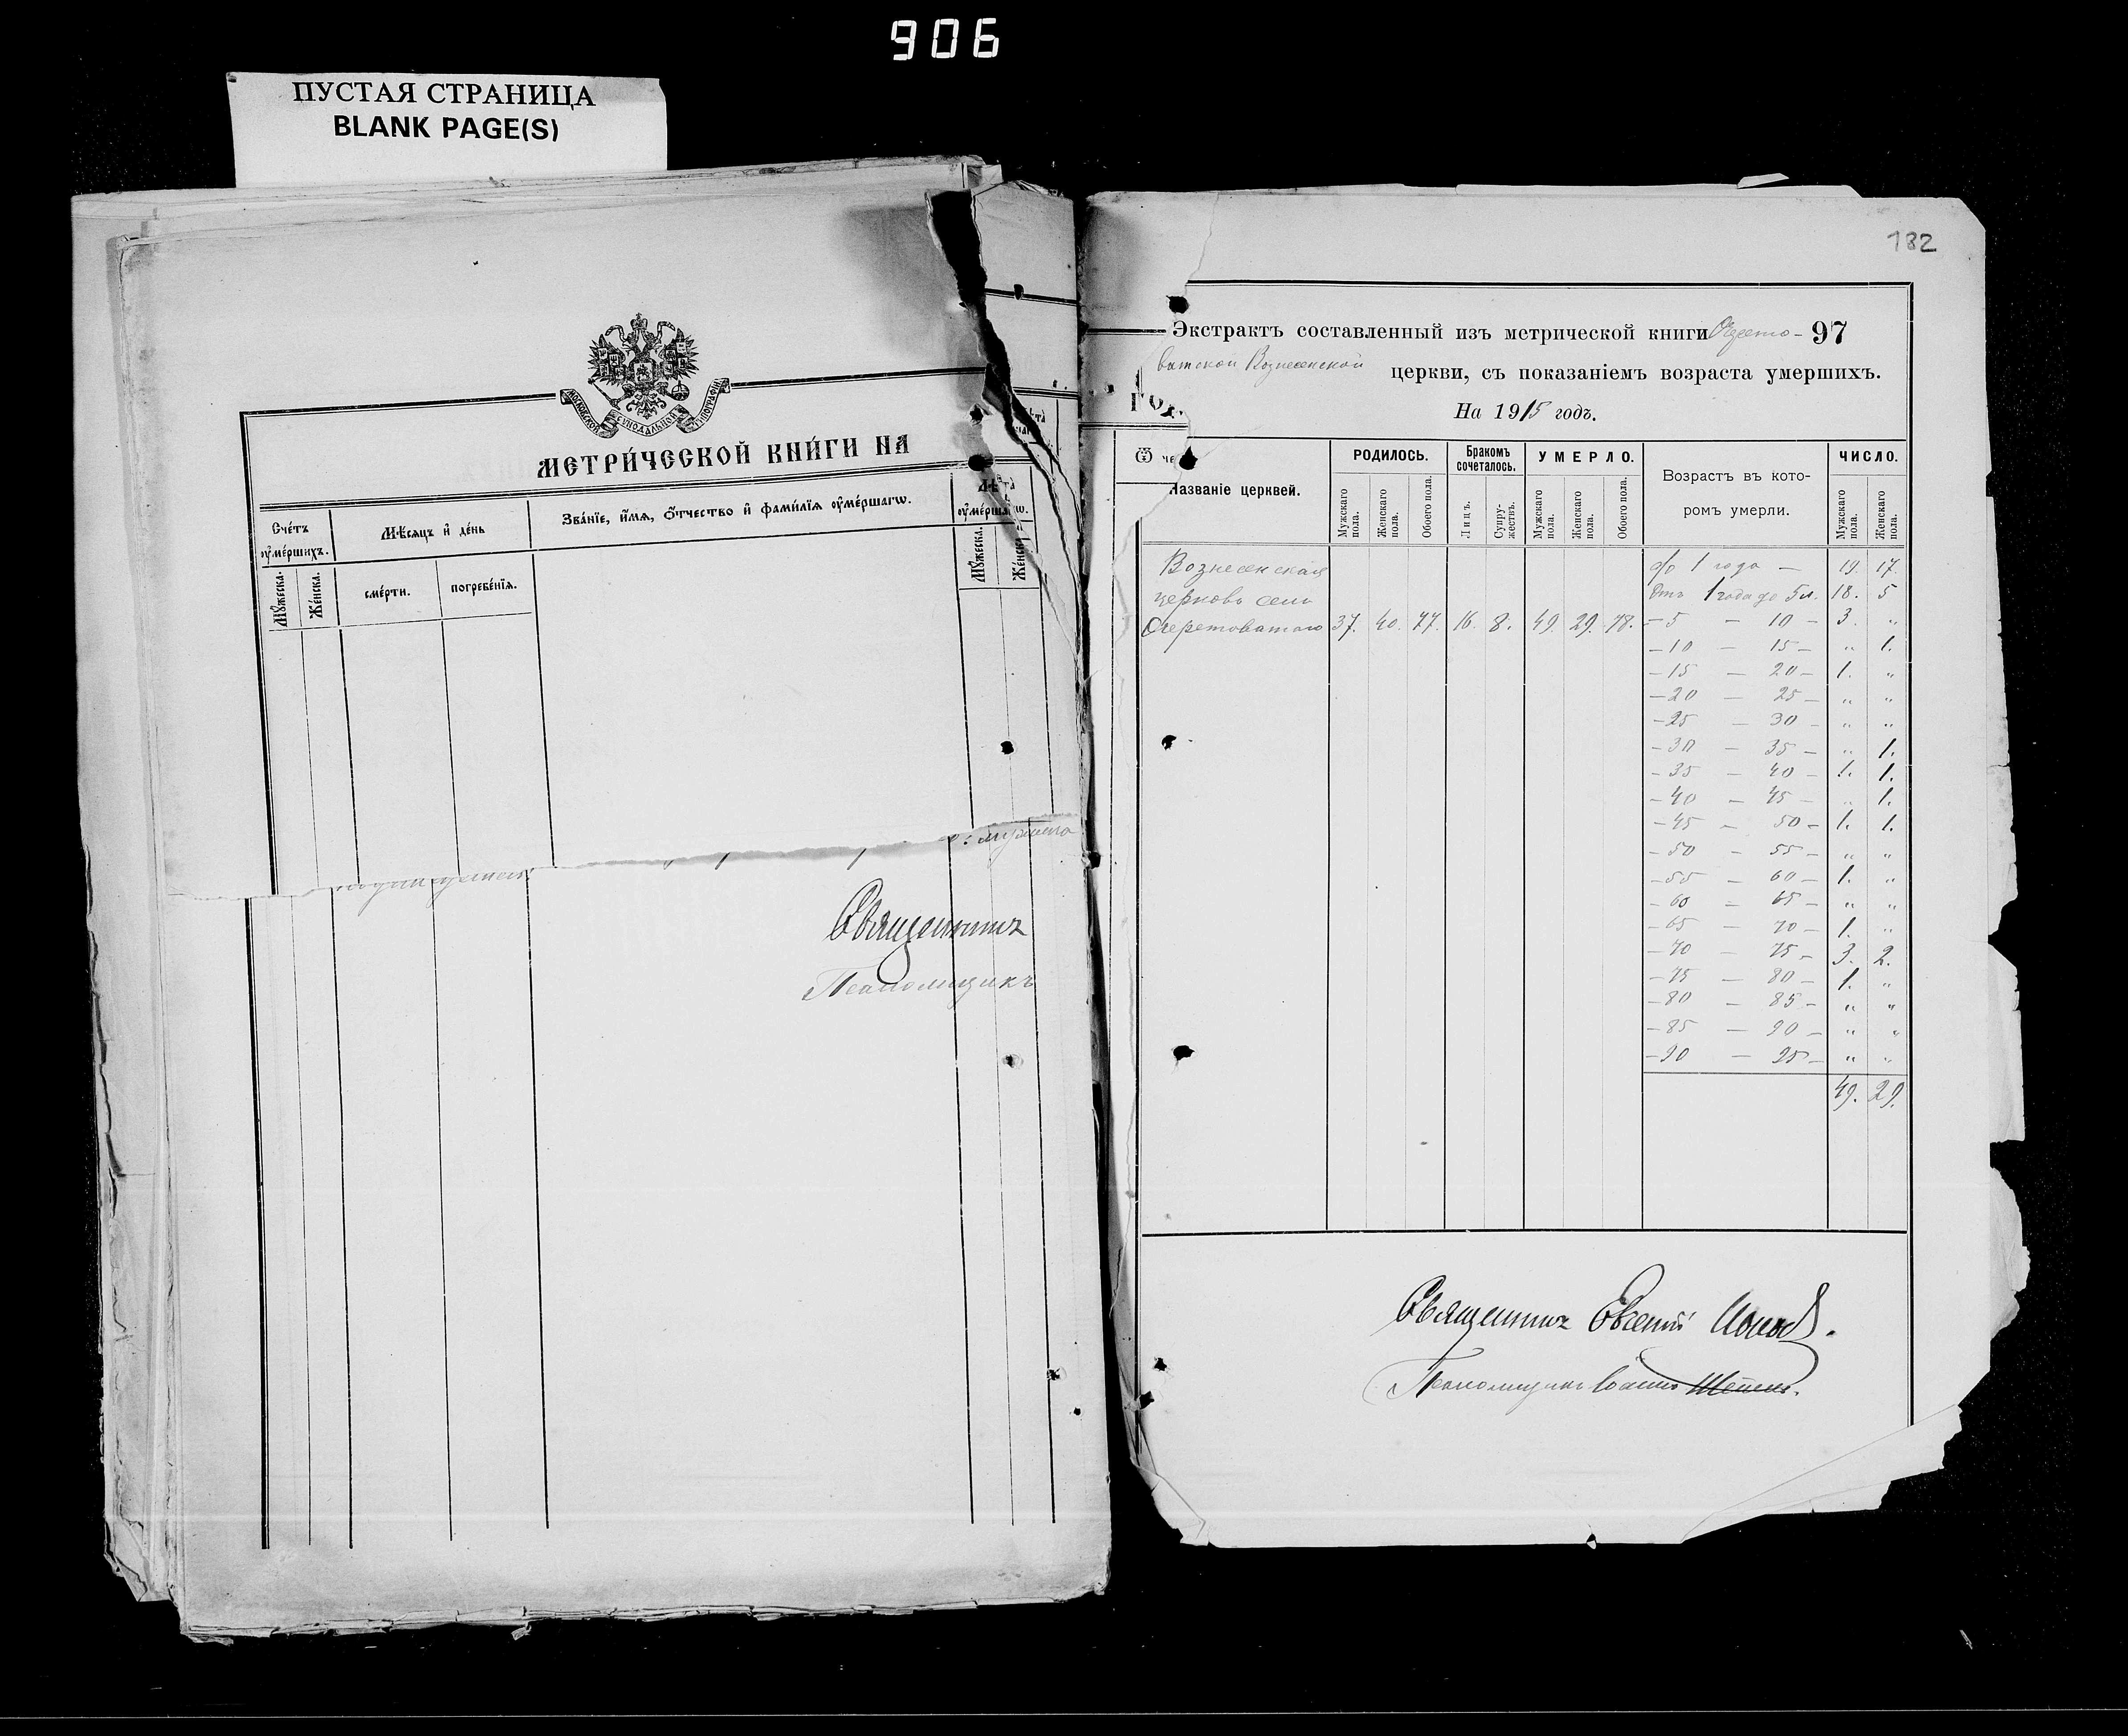 906
ПУСТАЯ СТРАНИЦА
BLANK PAGE(S)
МОСКОВСКОЙ СѴНОДАЛЬНОЙ ТИПОГРАФІИ
МЕТРИ́ЧЕСКОЙ КНИ́ГИ НА
Сче́тъ ᲂу҆ме́ршихъ.
Мꙋ́жеска.
Же́нска.
Мѣ́сяцъ и҆ де́нь
сме́рти.
погребе́нїя.
Зва́нїе, и҆́мя, ѻ҆́тчество и҆ фами́лїя ᲂу҆ме́ршагѡ.
Лѣ́та ᲂу҆ме́ршагѡ.
Мꙋ́жеска.
Же́нска
Священникъ
Псаломщикъ
182
97
Экстрактъ составленный изъ метрической книги Очерето-
ватской Вознесенской церкви, съ показаніемъ возраста умершихъ.
На 1915 годъ.
Названіе церквей.
РОДИЛОСЬ.
Мужскаго пола.
Женскаго пола.
Обоего пола.
Бракомъ сочеталось.
Лицъ.
Супружествъ.
УМЕРЛО.
Мужскаго пола.
Женскаго пола.
Обоего пола.
Возрастъ въ которомъ умерли.
ЧИСЛО.
Мужскаго пола.
Женскаго пола.
Вознесенская
церковь села
Очеретоватаго 37. 40. 77. 16. 8. 49. 29. 78.
до 1 года — 19. 17.
Отъ 1 года до 5 л. 18. 5
— 5 — 10 — 3. "
— 10 — 15 — " 1.
— 15 — 20 — 1. "
— 20 — 25 — " "
— 25 — 30 — " "
— 30 — 35 — " 1.
— 35 — 40 — 1. 1.
— 40 — 45 — " 1.
— 45 — 50 — 1. 1.
— 50 — 55 — " "
— 55 — 60 — 1. "
— 60 — 65 — " "
— 65 — 70 — 1. "
— 70 — 75 — 3. 2.
— 75 — 80 — 1. "
— 80 — 85 — " "
— 85 — 90 — " "
— 90 — 95 — " "
49. 29.
Священникъ Евсевій
Псаломщикъ Іоаннъ